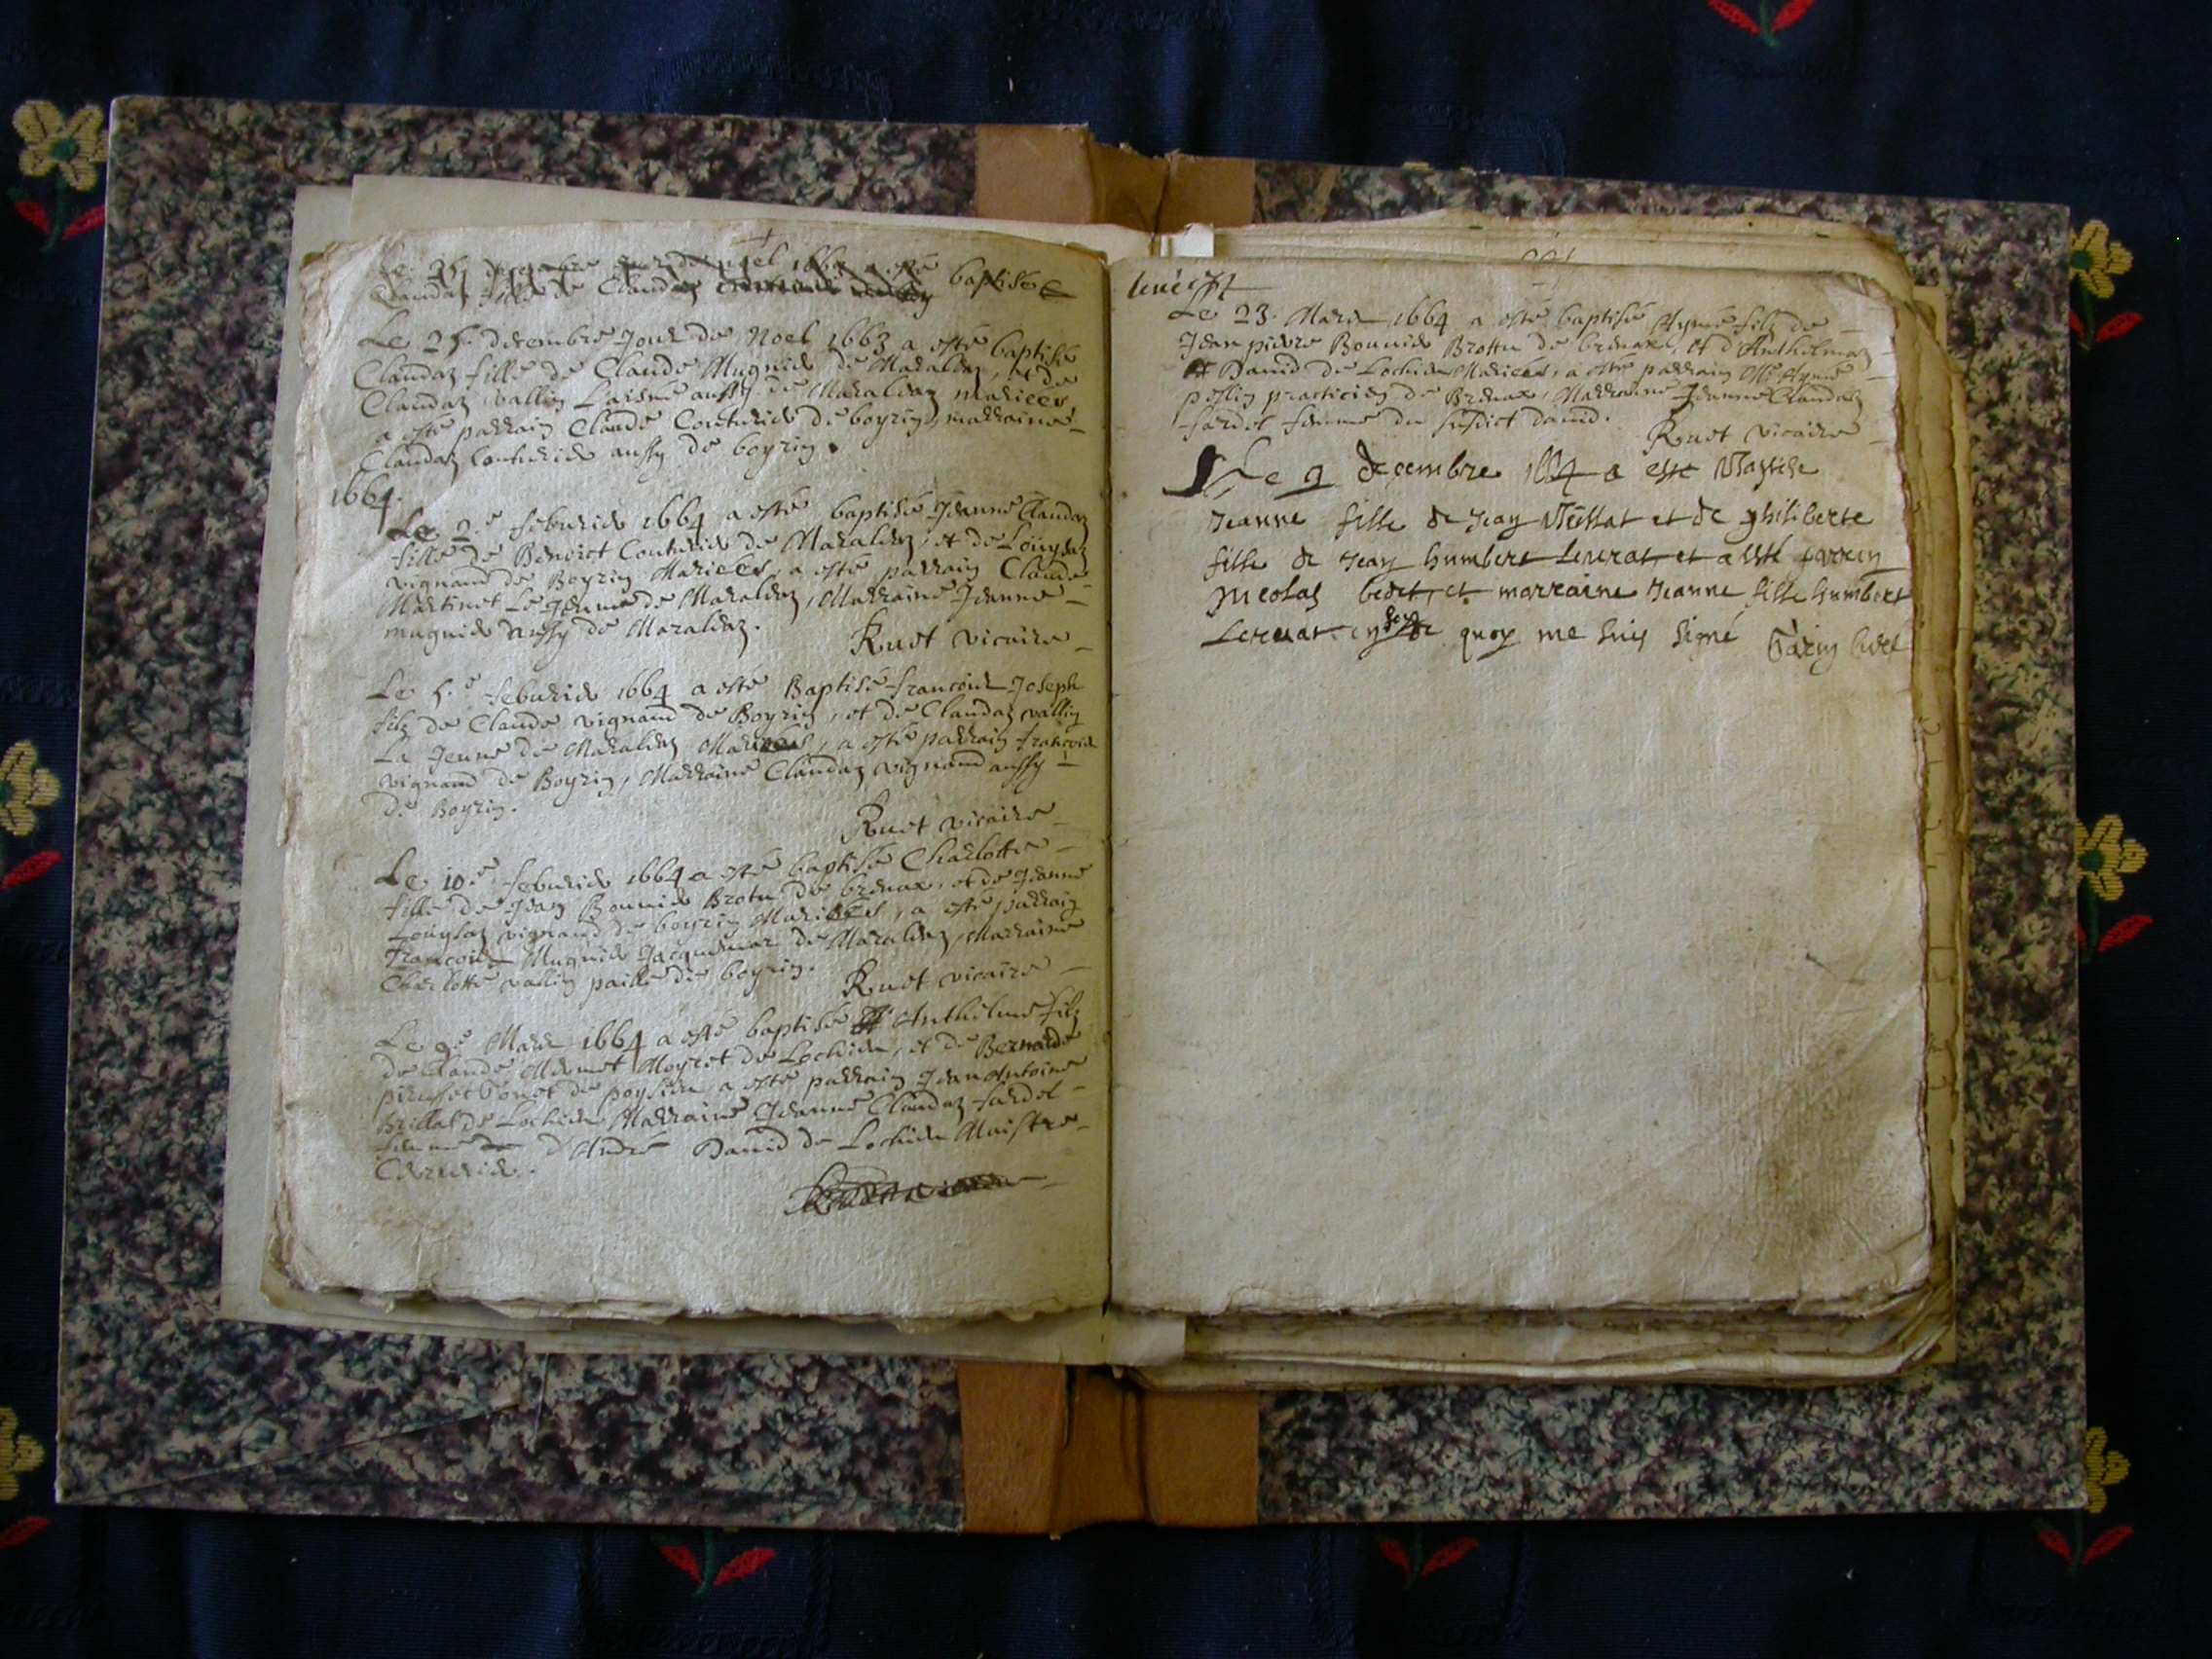 Le 25 decembre jour de noel 1663 a esté baptisée
Claudaz fille de Claudaz
Le 25. decembre Jour de Noel 1663 a esté baptisé
Claudaz fille de Claude Mugnier de Maraldaz, et de
Claudaz vallin Laisné aussy de Maraldaz mariees
a esté parrain Claude Couturier de boyrin, marraine
Claudaz Couturier aussy de boyrin.
1664.
Le 2.e feburier 1664 a esté baptisé Jeanne Claudaz
fille de Benoict Couturier de Maraldaz, et de Louysaz
vignand de Boyrin Mariees, a esté parrain Claude
Martinet Le Jeune de Maraldaz, Marraine Jeanne
mugnier aussy de Maraldaz.
Ruet vicaire
Le 5.e feburier 1664 a esté Baptisé francois Joseph
filz de Claude vignand de Boyrin, et de Claudaz vallin
La Jeune de Maraldaz Mariees, a esté parrain francois
vignand de Boyrin, Marraine Claudaz vignand aussy
de Boyrin.
Ruet vicaire
Le 10.e feburier 1664 a esté baptisé Charlotte
fille de Jean Bouvier Brotu de brenaz, et de Jeanne
Louysaz vignand de boyrin Mariees, a esté parrain
francois Mugnier Jacquemar de Maraldaz, Marraine
Charlotte vallin paille de boyrin.
Ruet vicaire
Le 9.e Mars 1664 a esté baptisé Anthelme filz
de Claude Moyret de Lochieu, et de Bernarde
a esté parrain Jean Antoine
brillat de Lochieu Marraine Jeanne Claudaz fardel
femme d'André David de Lochieu Maistre
Le 23. Mars 1664 a esté baptisé Aymé filz de
Jean pierre Bouvier Brottu de brenaz, et d'Anthelmaz
David de Lochieu Mariees, a esté parrain Mre Aymé
practicien de Brenaz, Marraine Jeanne Claudaz
fardel femme du susdict david.
Ruet vicaire
Le 9 decembre 1664 a esté Baptise
Jeanne fille de Jean et de philiberte
fille de Jean humbert Leverat et a esté parrin
Nicolas bedet, et marraine Jeanne fille humbert
Leverat en foy de quoy me suis signé